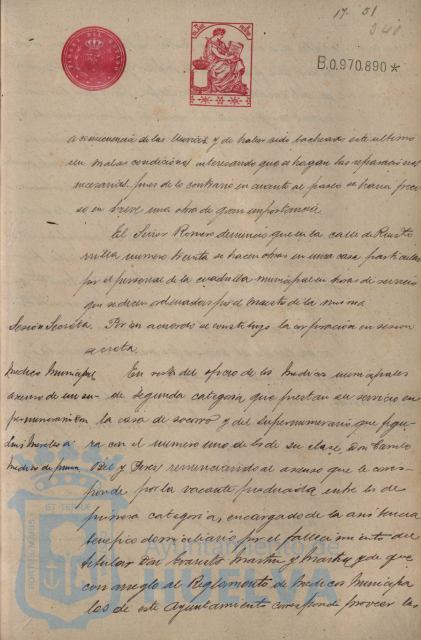 17. 51
B.0.970.890*
a consecuencia de las lluvias y de haber sido bacheado este ultimo
en malas condiciones interesando que se hagan las reparaciones
necesarias pues de lo contrario en cuanto al paseo se haria preci
so en breve una obra de gran importancia.
El Señor Romero denunció que en la calle de
numero treinta se hacen obras en una casa particular
por el personal de la cuadrilla municipal en horas de servicio
que se dicen ordenadas por el maestro de la misma
Sesión Secreta. Por un acuerdo se constituyó la corporación en sesion
secreta.
Medicos Municipal En vista del oficio de los Medicos municipales
ascenso de un su- de segunda categoria que prestan su servicio en
pernumerario la casa de socorro y del supernumerario que figu
Luis Morales a ra con el numero uno de los de su clase, Don Camilo
medico de primera y Perez renunciando al ascenso que le corres
ponde por la vacante producida entre los de
primera categoria, encargado de la asistencia
benefico domiciliaria por el fallecimiento del
titular Don Martin y Martin y de que
con arreglo al Reglamento de Medicos Municipa
les de este Ayuntamiento corresponde proveer las
Ayuntamiento de
HUELVA